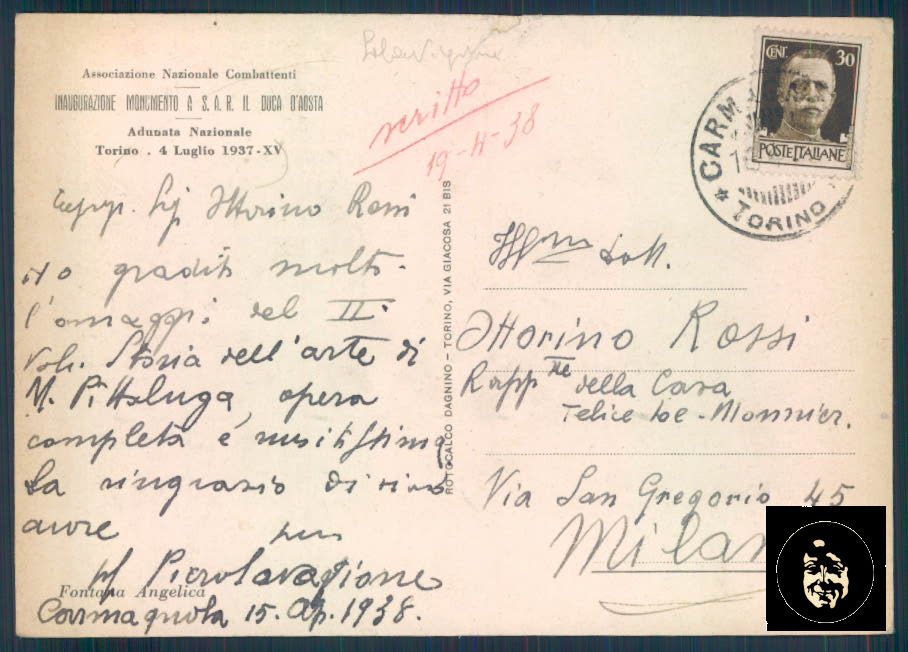 Associazione Nazionale Combattenti
INAUGURAZIONE MONUMENTO A S. A. R. IL DUCA D'AOSTA
Adunata Nazionale
Torino . 4 Luglio 1937-XV
scritto
19-4-38
Egrg. Sig Ottorino Rossi
Ho gradito molto
l'omaggio del II°
Vol. Storia dell'arte di
M. Pittaluga, opera
completa e
La ringrazio di vivo
cuore
Pierolavagione
Fontana Angelica
Carmagnola 15. Ap. 1938.
ROTOCALCO DAGNINO - TORINO, VIA GIACOSA 21 BIS
CENT 30
POSTE ITALIANE
CARM
TORINO
Ill mo Dott.
Ottorino Rossi
Rapp te della Casa
Felice Le-Monnier.
Via San Gregorio 45
Milan